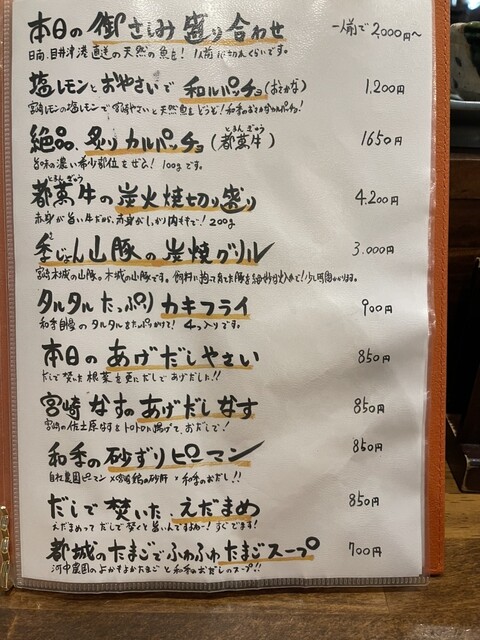 本日の 御さしみ 盛り合わせ 一人前で 2,000円〜
日南、目井津港 直送の 天然の 魚を! 1人前 に切れくらいです。
塩レモンと おやさいで 和ルパッチョ(おさかな) 1,200円
宮崎レモンの塩レモンで 宮崎やさいと 天然魚を どうぞ! 和季のおさかなカルパッチョ!
絶品、炙りカルパッチョ(都萬牛) 1650円
とまんぎゅう
旨味の濃い希少部位を ぜひ! 100gです。
とまんぎゅう
都萬牛の 炭火焼切り盛り 4,200円
赤身が 旨い牛だから、赤身がしっかり肉です! 200g
季じょん山豚の 炭焼グリル 3,000円
宮崎木城の山豚。木城の山豚です。飼料に拘って育てた豚を
タルタル たっぷり カキフライ 900円
和季自慢の タルタルをたっぷりかけて! 4つ入りです。
本日の あげだしやさい 850円
だしで 焚いた 根菜を 更にだしで あげだしに!!
宮崎 なすの あげだし なす 850円
宮崎の佐土原なすを トロトロに揚げて、おだしで!
和季の 砂ずりピーマン 850円
自社農園ピーマン×宮崎鶏の砂肝 × 和季のおだし!!
だしで 焚いた えだまめ 850円
えだまめって だしで 焚くと 旨いんですよねー! すぐでます!
都城のたまごで ふわふわ たまごスープ 700円
河中農園の よかもよかたまご と 和季のおだしのスープ!!